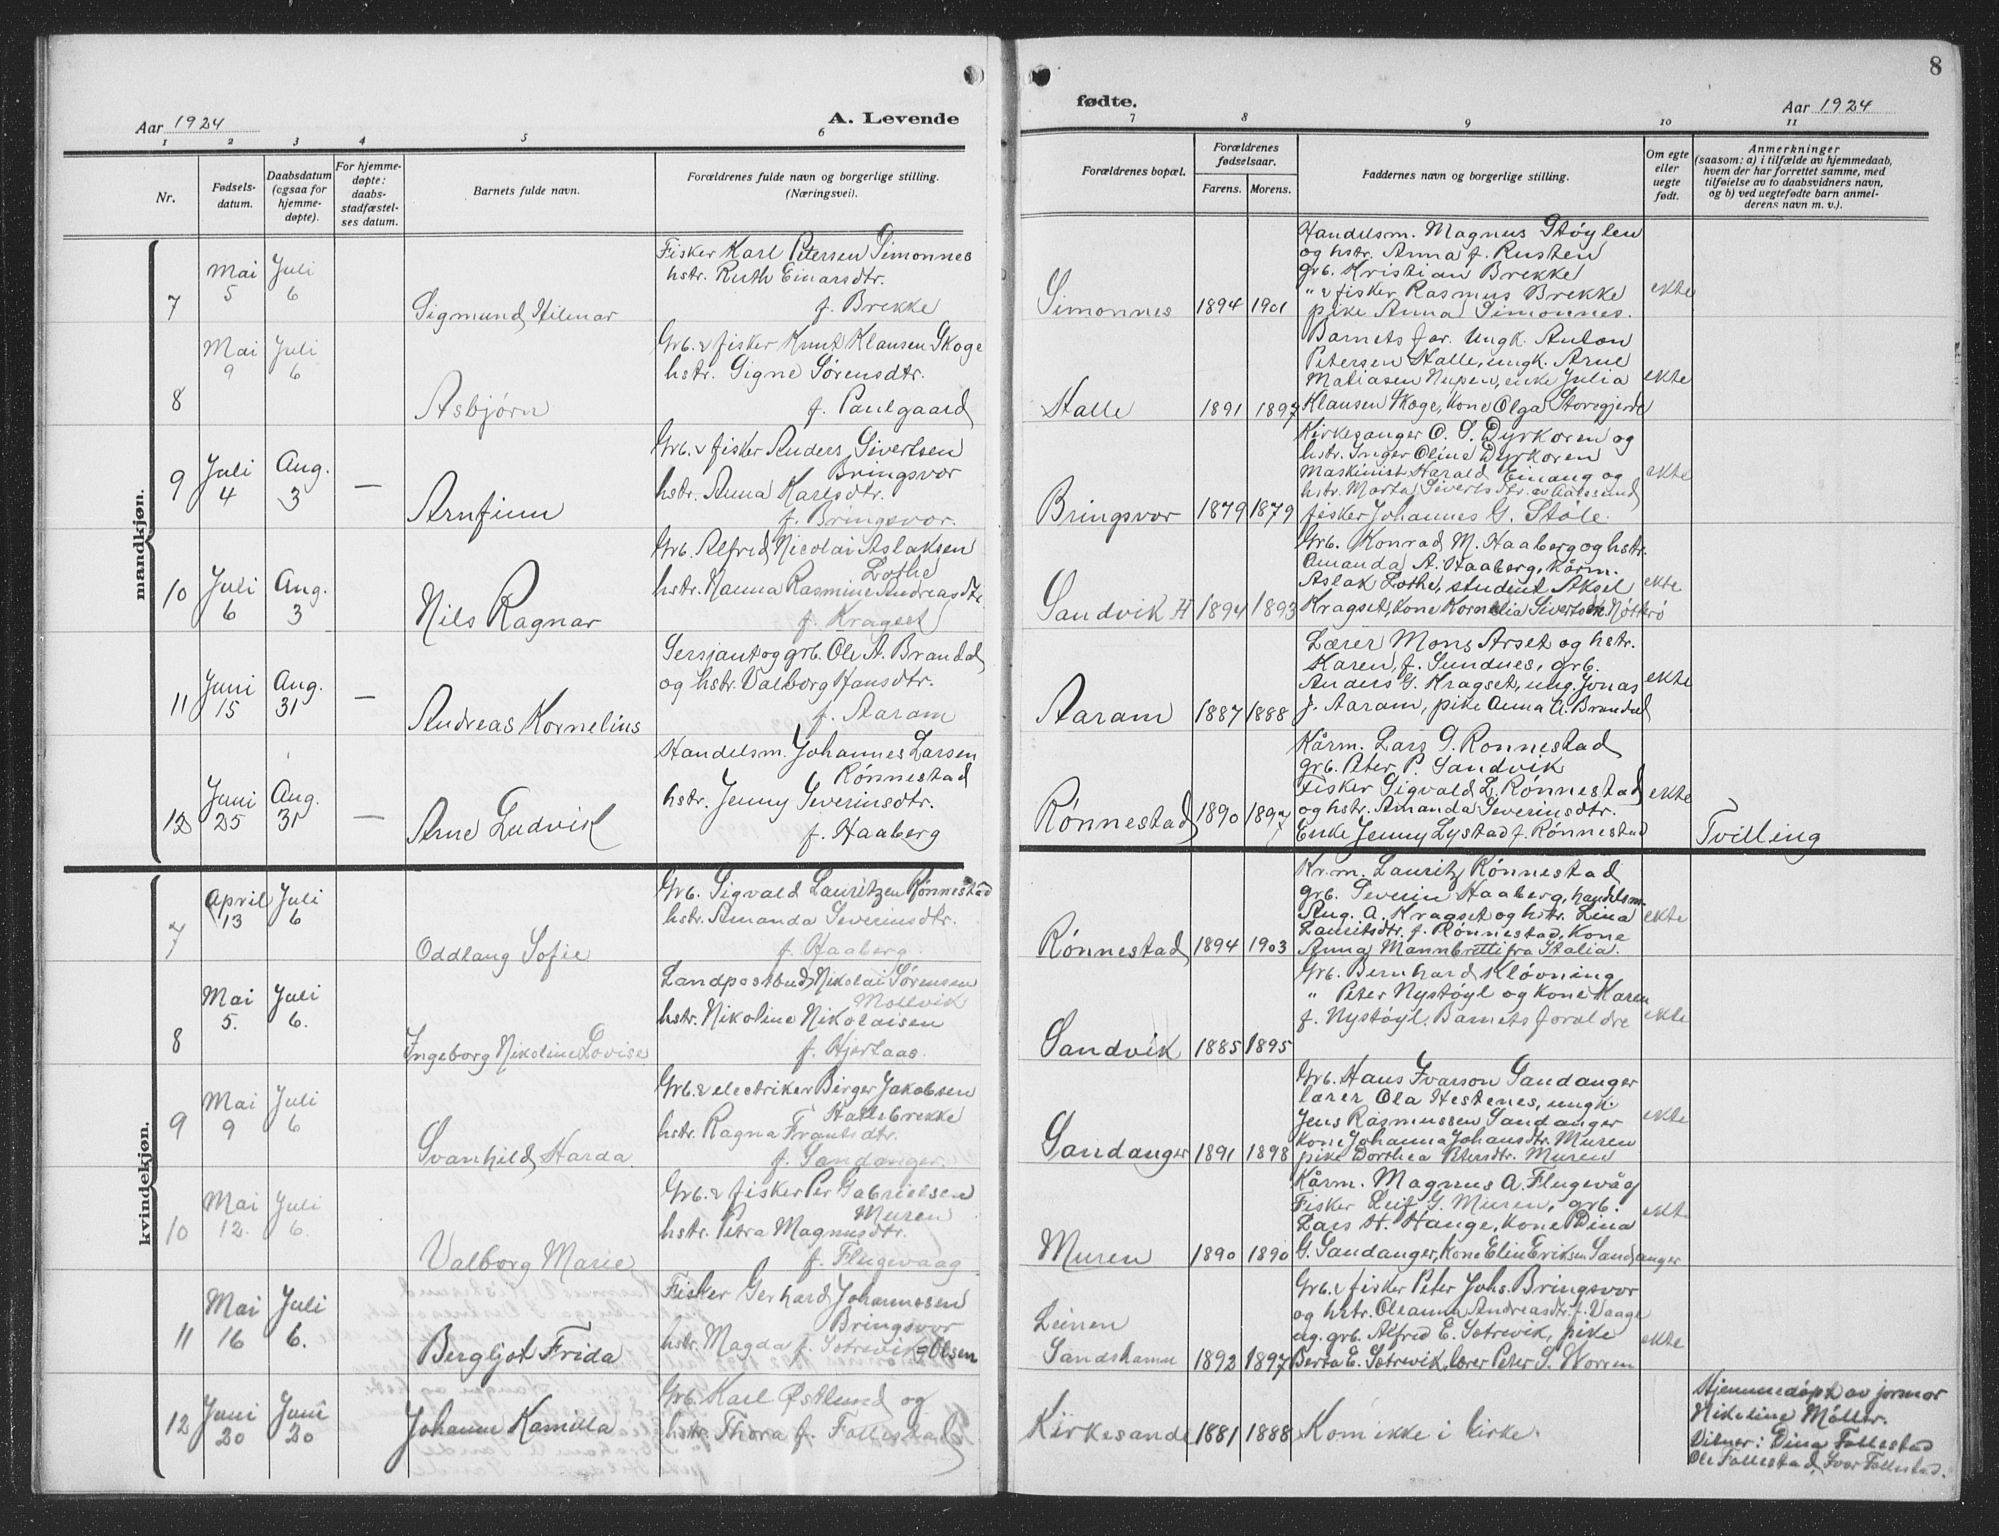 8
Aar 1924
A. Levende
fødte.
Aar 1924
1 2 3 4 5 6 7 8 9 10 11
Nr.
Fødsels-
datum.
Daabsdatum
(ogsaa for
hjemme-
døpte).
For hjemme-
døpte:
daabs-
stadfæstel-
ses datum.
Barnets fulde navn.
Forældrenes fulde navn og borgerlige stilling.
(Næringsvei).
Forældrenes bopæl.
Forældrenes
fødselsaar.
Farens. Morens.
Faddernes navn og borgerlige stilling.
Om egte
eller
uegte
født.
Anmerkninger
(saasom: a) i tilfælde av hjemmedaab,
hvem der har forrettet samme, med
tilføielse av to daabsvidners navn,
og b) ved uegtefødte barn anmel-
derens navn m. v.).
mandkjøn.
7
Mai
5
Juli
6
Sigmund Hilmar
Fisker Karl Petersen Simonnes
hstr. Ruth Einarsdtr.
f. Brekke
Simonnes
1894 1901
Handelsm. Magnus Støylen
og hstr. Anna f. Rusten
grb. Kristian Brekke
" & fisker Rasmus Brekke
pike Anna Simonnes.
ekte
8
Mai
9
Juli
6
Asbjørn
Grb. & fisker Knut Klausen Skoge
hstr. Signe Sørensdtr.
f. Paulgaard
Halle
1891 1897
Barnets far. Ungk. Anton
Petersen Halle, ungk. Arne
Matiasen Nupen, enke Julia
Klausen Skoge, kone Olga Storegjerde
ekte
9
Juli
4
Aug.
3
—
Arnfinn
Grb. & fisker Anders Sivertsen
Bringsvor
hstr. Anna Karlsdtr.
f. Bringsvor.
Bringsvor
1879 1879
Kirkesanger O. S. Dyrkoren og
hstr. Inger Oline Dyrkoren
Maskinist Harald Einang og
hstr. Marta Sivertsdtr. av Aalesund
fisker Johannes G. Støle.
ekte
10
Juli
6
Aug.
3
Nils Ragnar
Grb. Alfred Nicolai Aslaksen
Lothe
hstr. Nanna Rasmine Andreasdtr
f. Kragset
Sandvik H
1894 1893
Grb. Konrad M. Haaberg og hstr.
Amanda A. Haaberg, kårm.
Aslak Lothe, student Aksel
Kragset, kone Kornelia Sivertsen Nøtterø
ekte
11
Juni
15
Aug.
31
—
Andreas Kornelius
Sersjant og grb. Ole A. Brandal
og hstr. Valborg Hansdtr.
f. Aaram
Aaram
1887 1888
Lærer Mons Arset og hstr.
Karen, f. Sundnes, grb.
Anders G. Kragset, ung. Jonas
J. Aaram, pike Anna A. Brandal
ekte
12
Juni
25
Aug.
31
—
Arne Ludvik
Handelsm. Johannes Larsen
Rønnestad
hstr. Jenny Severinsdtr.
f. Haaberg
Rønnestad
1890 1897
Kårm. Lars G. Rønnestad
grb. Peter P. Sandvik
Fisker Sigvald L. Rønnestad
og hstr. Amanda Severinsdtr.
Enke Jenny Lystad f. Rønnestad
ekte
Tvilling
kvindekjøn.
7
April
13
Juli
6
Oddlaug Sofie
Grb. Sigvald Lauritzen Rønnestad
hstr. Amanda Severinsdtr.
f. Haaberg.
Rønnestad
1894 1903
Kr.m. Lauritz Rønnestad
grb. Severin Haaberg, handelsm.
Aug. A. Kragset og hstr. Lina
Lauritsdtr. f. Rønnestad. Kone
Anna Mannbretti fra Italia.
ekte
8
Mai
5.
Juli
6.
Ingeborg Nikoline Lovise
Landpostbud Nikolai Sørensen
Mollvik
hstr. Nikoline Nikolaisen
f. Hjertaas.
Sandvik
1885 1895
Grb. Bernhard Kløvning
" Peter Nystøyl og kone Karen
f. Nystøyl. Barnets foraldre
ekte
9
Mai
9
Juli
6
Svanhild Harda.
Grb. & electriker Birger Jakobsen
Hallebrekke
hstr. Ragna Frantsdtr.
f. Sandanger.
Sandanger
1891 1898
Grb. Hans Ivarson Sandanger
lærer Ola Hestenes, ungk.
Jens Rasmussen Sandanger
kone Johanna Johansdtr. Muren
pike Dorthea Petersdtr. Muren
ekte
10
Mai
12.
Juli
6.
Valborg Marie
Grb. & fisker Per Gabrielsen
Muren
hstr. Petra Magnusdtr.
f. Flugevaag
Muren
1890 1890
Kårm. Magnus A. Flugevåg
Fisker Leif G. Muren, grb.
Lars H. Hauge, kone Dina
G. Sandanger, kone Elin Eriksen Sandanger
ekte
11
Mai
16
Juli
6.
Bergljot Frida
Fisker Gerhard Johannesen
Bringsvor
hstr. Magda f. Sætrevik Olsen
Leinen
Sandshamn
1892 1897
Grb. & fisker Peter Johs. Bringsvor
og hstr. Oleanna Andreasdtr. f. Vaage
ug. grb. Alfred E. Sætrevik, pike
Berta E. Sætrevik, lærer Peter S. Worren
ekte
12
Juni
20
Juni
20
Johanne Kamilla
Grb. Karl Østlund og
hstr. Thora f. Follestad
Kirkesande
1881 1888
Kom ikke i kirke.
Hjemmedøpt av jormor
Nikoline Møller.
Vitner: Dina Follestad
Ole Follestad, Ivar Follestad.